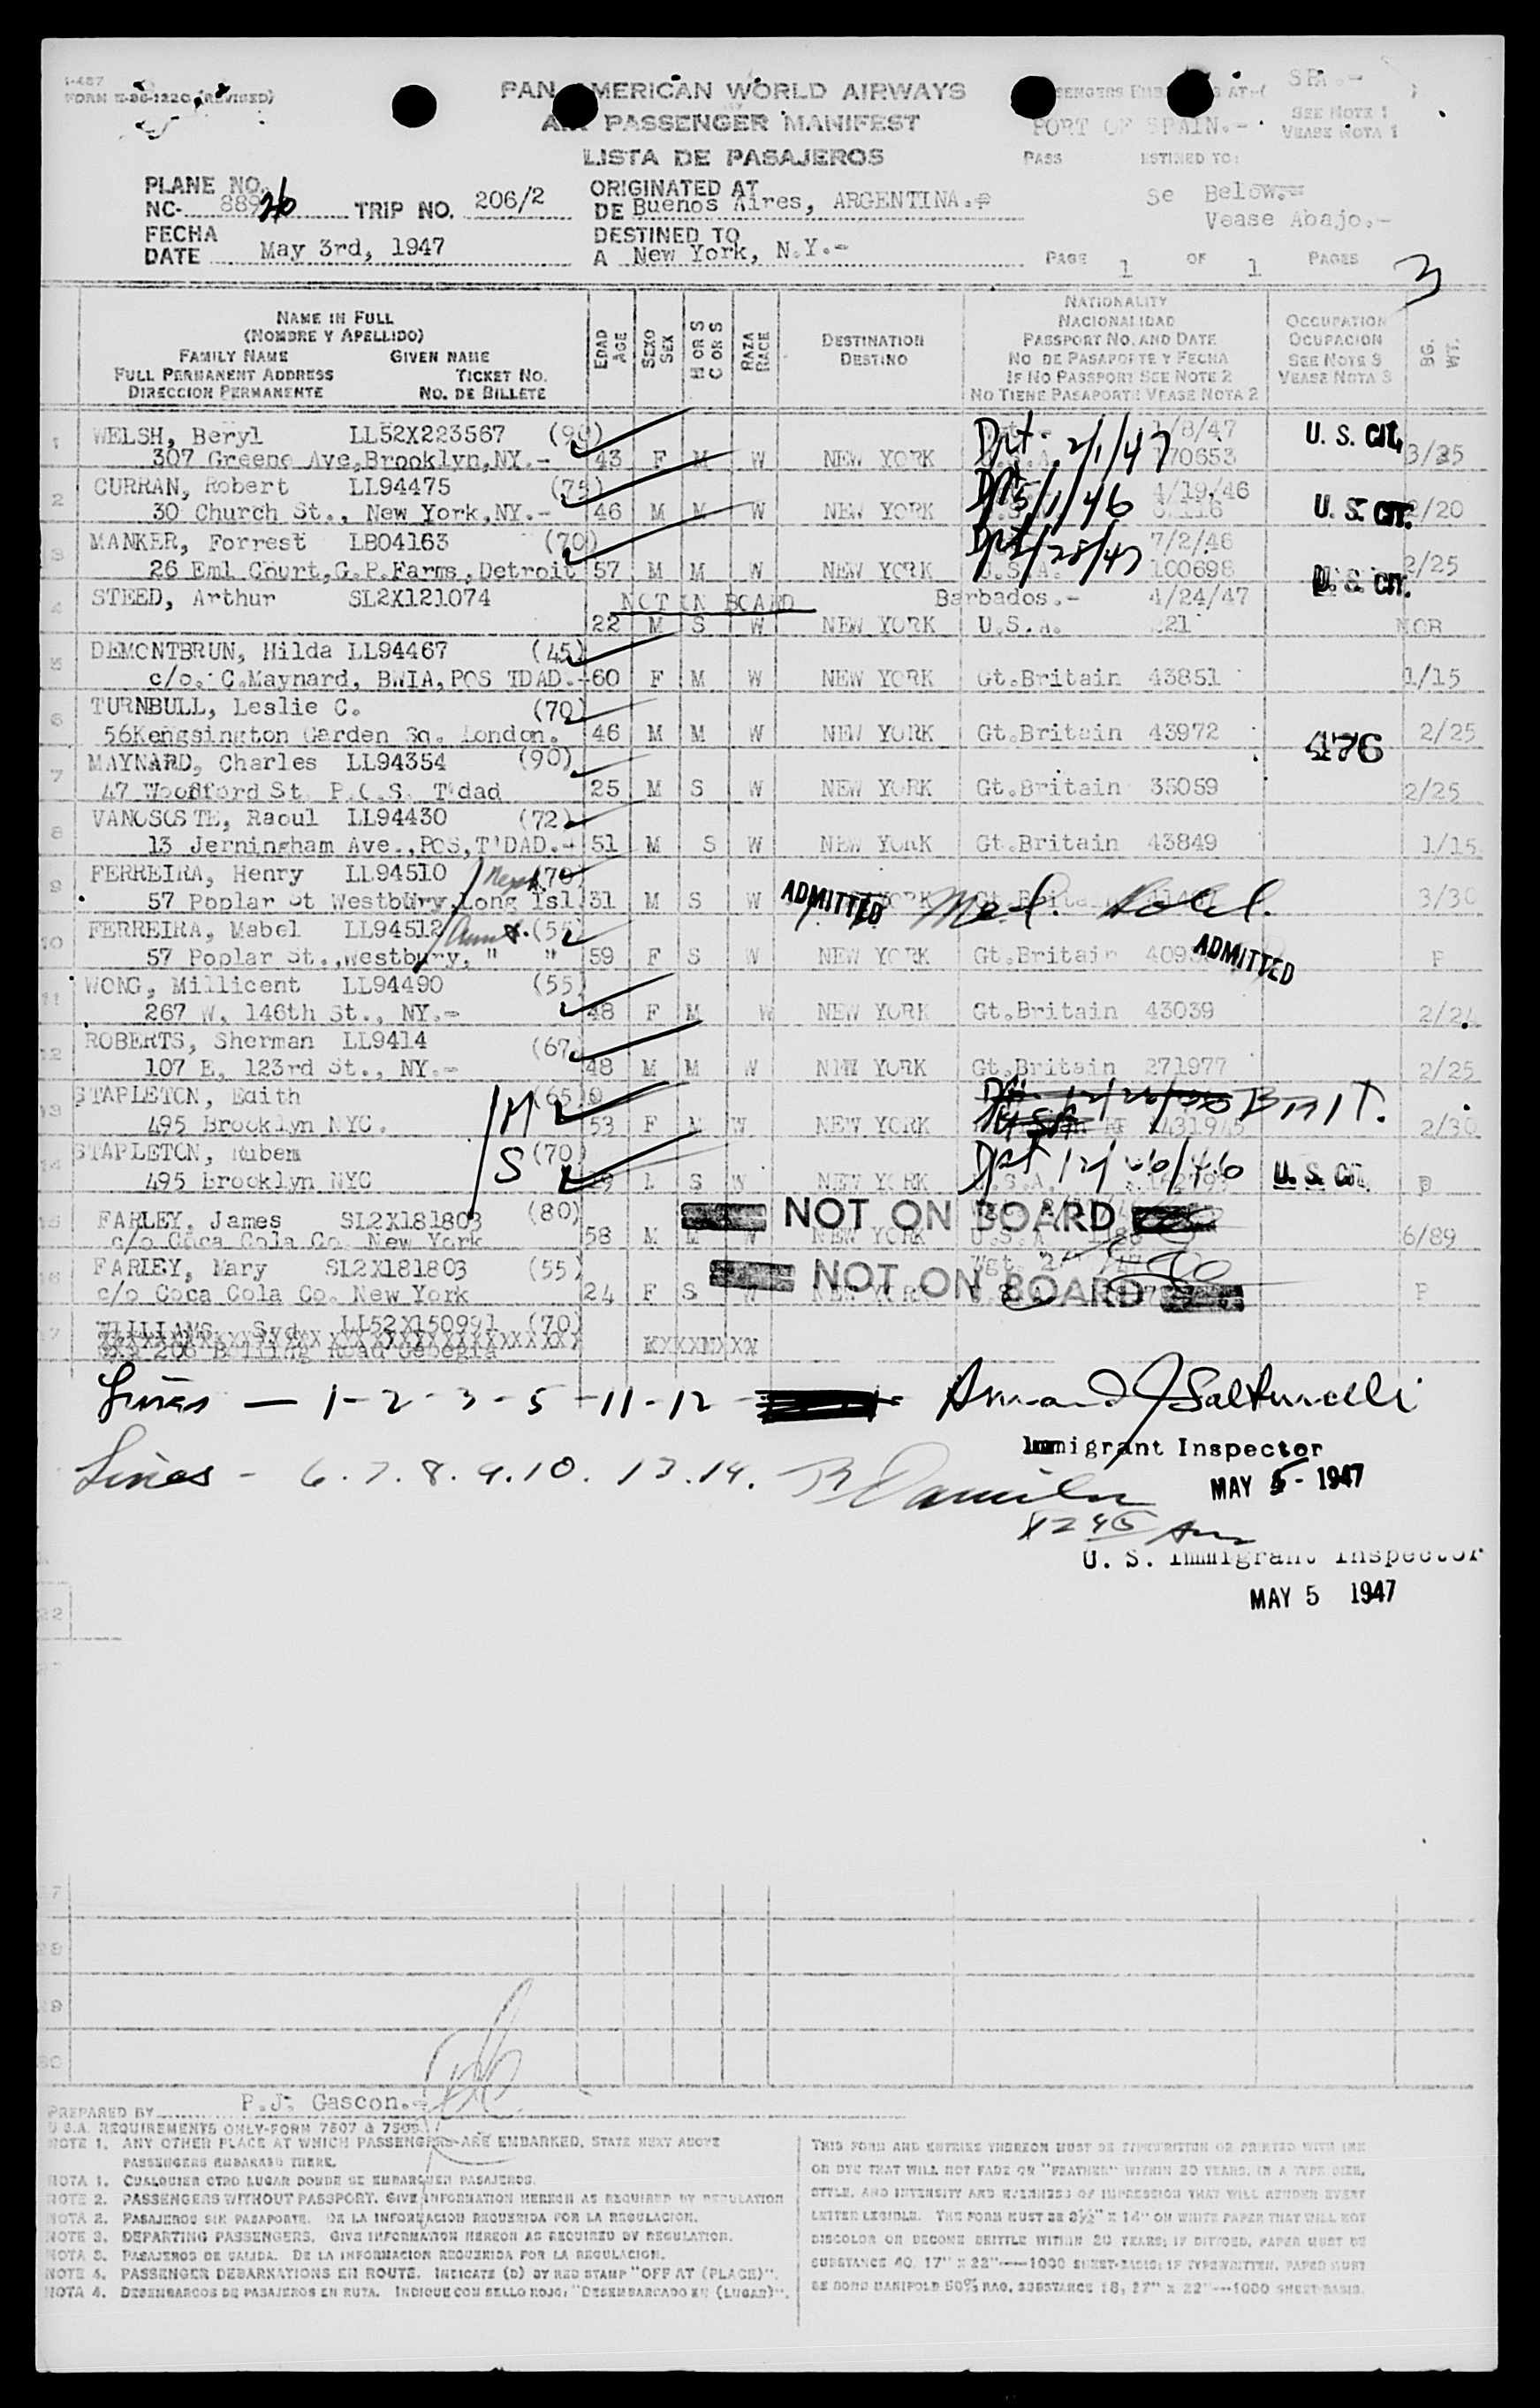 I-487
FORM (REVISED)
PAN AMERICAN WORLD AIRWAYS
PASSENGER MANIFEST
LISTA DE PASAJEROS
PORT OF SPAIN.-
SEE NOTE 1
VEASE NOTA 1
PLANE NO.
NC- 889 26 TRIP NO. 206/2
ORIGINATED AT
DE Buenos Aires, ARGENTINA.
Se Below.=
Vease Abajo.-
FECHA
DATE May 3rd, 1947
DESTINED TO
A New York, N.Y.-
PAGE 1 OF 1 PAGES 3
NAME IN FULL
(NOMBRE Y APELLIDO)
FAMILY NAME GIVEN NAME
FULL PERMANENT ADDRESS TICKET NO.
DIRECCION PERMANENTE NO. DE BILLETE
EDAD AGE
SEXO SEX
M OR S C OR S
RAZA RACE
DESTINATION
DESTINO
NATIONALITY
NACIONALIDAD
PASSPORT NO. AND DATE
NO DE PASAPORTE Y FECHA
IF NO PASSPORT SEE NOTE 2
NO TIENE PASAPORTE VEASE NOTA 2
OCCUPATION
OCUPACION
SEE NOTE 3
VEASE NOTA 3
BG. WT.
1 WELSH, Beryl LL52X223567 (90) 2/1/47 1/8/47 U. S. CIT.
307 Greene Ave,Brooklyn,NY.- 43 F M W NEW YORK 170653
2 CURRAN, Robert LL94475 (75) 5/1/46 4/19/46
30 Church St., New York,NY.- 46 M M W NEW YORK U. S. CIT. /20
3 MANKER, Forrest LB04163 (70) 7/2/46
26 Eml Court,G.P.Farms,Detroit 57 M M W NEW YORK U.S.A. 100698 U. S. CIT. 2/25
4 STEED, Arthur SL2X121074 NOT ON BOARD Barbados.- 4/24/47
22 M S W NEW YORK U.S.A. 21 NOB
5 DEMONTBRUN, Hilda LL94467 (45)
c/o. C.Maynard, BWIA,POS TDAD.- 60 F M W NEW YORK Gt.Britain 43851 1/15
6 TURNBULL, Leslie C. (70)
56Kengsington Garden Sq. London. 46 M M W NEW YORK Gt.Britain 43972 2/25
476
7 MAYNARD, Charles LL94354 (90)
47 Woodford St P.O.S. T'dad 25 M S W NEW YORK Gt.Britain 35059 2/25
8 VANOSOSTE, Raoul LL94430 (72)
13 Jerningham Ave.,POS,T'DAD.- 51 M S W NEW YORK Gt.Britain 43849 1/15
9 FERREIRA, Henry LL94510 (70)
57 Poplar St Westbury,Long Isl 31 M S W ADMITTED 3/30
10 FERREIRA, Mabel LL94512 Aunt. (55)
57 Poplar St.,Westbury, " " 59 F S W NEW YORK Gt.Britain ADMITTED P
11 WONG, Millicent LL94490 (55)
267 W, 146th St., NY.- 48 F M W NEW YORK Gt.Britain 43039
12 ROBERTS, Sherman LL9414 (67)
107 E, 123rd St., NY.- 48 M M W NEW YORK Gt.Britain 271977 2/25
13 STAPLETON, Edith (65) M BRIT.
495 Brooklyn NYC. 53 F M W NEW YORK 2/30
14 STAPLETON, Ruben S (70)
495 Brooklyn NYC S W NEW YORK U.S.A. U. S. CIT.
15 FARLEY, James SL2X181803 (80) NOT ON BOARD
c/o Coca Cola Co. New York 58 M M W NEW YORK U.S.A 6/89
16 FARLEY, Mary SL2X181803 (55) NOT ON BOARD
c/o Coca Cola Co. New York 24 F S W P
17 WILLIAMS, Syd LL52X150991 (70)
Lines — 1-2-3-5-11-12
Immigrant Inspector
MAY 5 - 1947
Lines - 6.7.8.9.10.13.14.
1245 Am
U. S. Immigrant Inspector
MAY 5 1947
22
PREPARED BY P.J. Gascon.-
U.S.A. REQUIREMENTS ONLY-FORM 7507 & 7509
NOTE 1. ANY OTHER PLACE AT WHICH PASSENGERS ARE EMBARKED, STATE NEXT ABOVE
PASSENGERS EMBARKED THERE.
NOTA 1. CUALQUIER OTRO LUGAR DONDE SE EMBARQUEN PASAJEROS.
NOTE 2. PASSENGERS WITHOUT PASSPORT. GIVE INFORMATION HEREON AS REQUIRED BY REGULATION
NOTA 2. PASAJEROS SIN PASAPORTE. DE LA INFORMACION REQUERIDA POR LA REGULACION.
NOTE 3. DEPARTING PASSENGERS. GIVE INFORMATION HEREON AS REQUIRED BY REGULATION.
NOTA 3. PASAJEROS DE SALIDA. DE LA INFORMACION REQUERIDA POR LA REGULACION.
NOTE 4. PASSENGER DEBARKATIONS EN ROUTE. INDICATE (D) BY RED STAMP "OFF AT (PLACE)".
NOTA 4. DESEMBARCOS DE PASAJEROS EN RUTA. INDIQUE CON SELLO ROJO: "DESEMBARCADO EN (LUGAR)".
THIS FORM AND ENTRIES THEREON MUST BE TYPEWRITTEN OR PRINTED WITH INK
OR DYE THAT WILL NOT FADE OR "FEATHER" WITHIN 20 YEARS, IN A TYPE SIZE,
STYLE, AND INTENSITY AND EVENNESS OF IMPRESSION THAT WILL RENDER EVERY
LETTER LEGIBLE. THE FORM MUST BE 8½" X 14" ON WHITE PAPER THAT WILL NOT
DISCOLOR OR BECOME BRITTLE WITHIN 20 YEARS; IF DITTOED, PAPER MUST BE
SUBSTANCE 40, 17" X 22"----1000 SHEET-BASIS; IF TYPEWRITTEN, PAPER MUST
BE BOND MANIFOLD 50% RAG, SUBSTANCE 18, 17" X 22"---1000 SHEET-BASIS.